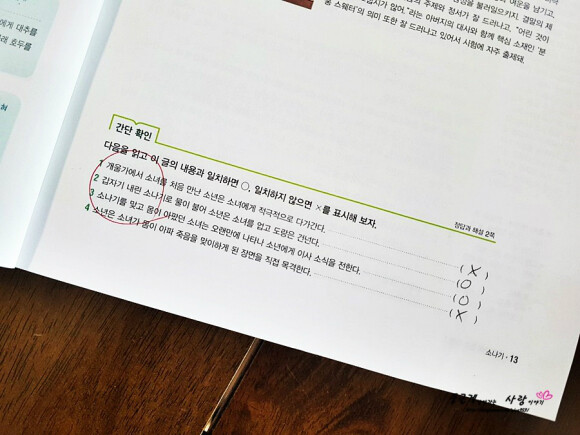 에게 대추를
래 호두를
의 주제와 정서가 잘 드러나고, "어린 것이
않아."라는 아버지의 대사와 함께 핵심 소재인 '분
홍 스웨터'의 의미 또한 잘 드러나고 있어서 시험에 자주 출제돼.
간단 확인
다음을 읽고 이 글의 내용과 일치하면 ○, 일치하지 않으면 ×를 표시해 보자.
정답과 해설 2쪽
1 개울가에서 소녀를 처음 만난 소년은 소녀에게 적극적으로 다가간다. ( X )
2 갑자기 내린 소나기로 물이 불어 소년은 소녀를 업고 도랑은 건넌다. ( O )
3 소나기를 맞고 몸이 아팠던 소녀는 오랜만에 나타나 소년에게 이사 소식을 전한다. ( O )
4 소년은 소녀가 몸이 아파 죽음을 맞이하게 된 장면을 직접 목격한다. ( X )
소나기 · 13
사랑 이야기